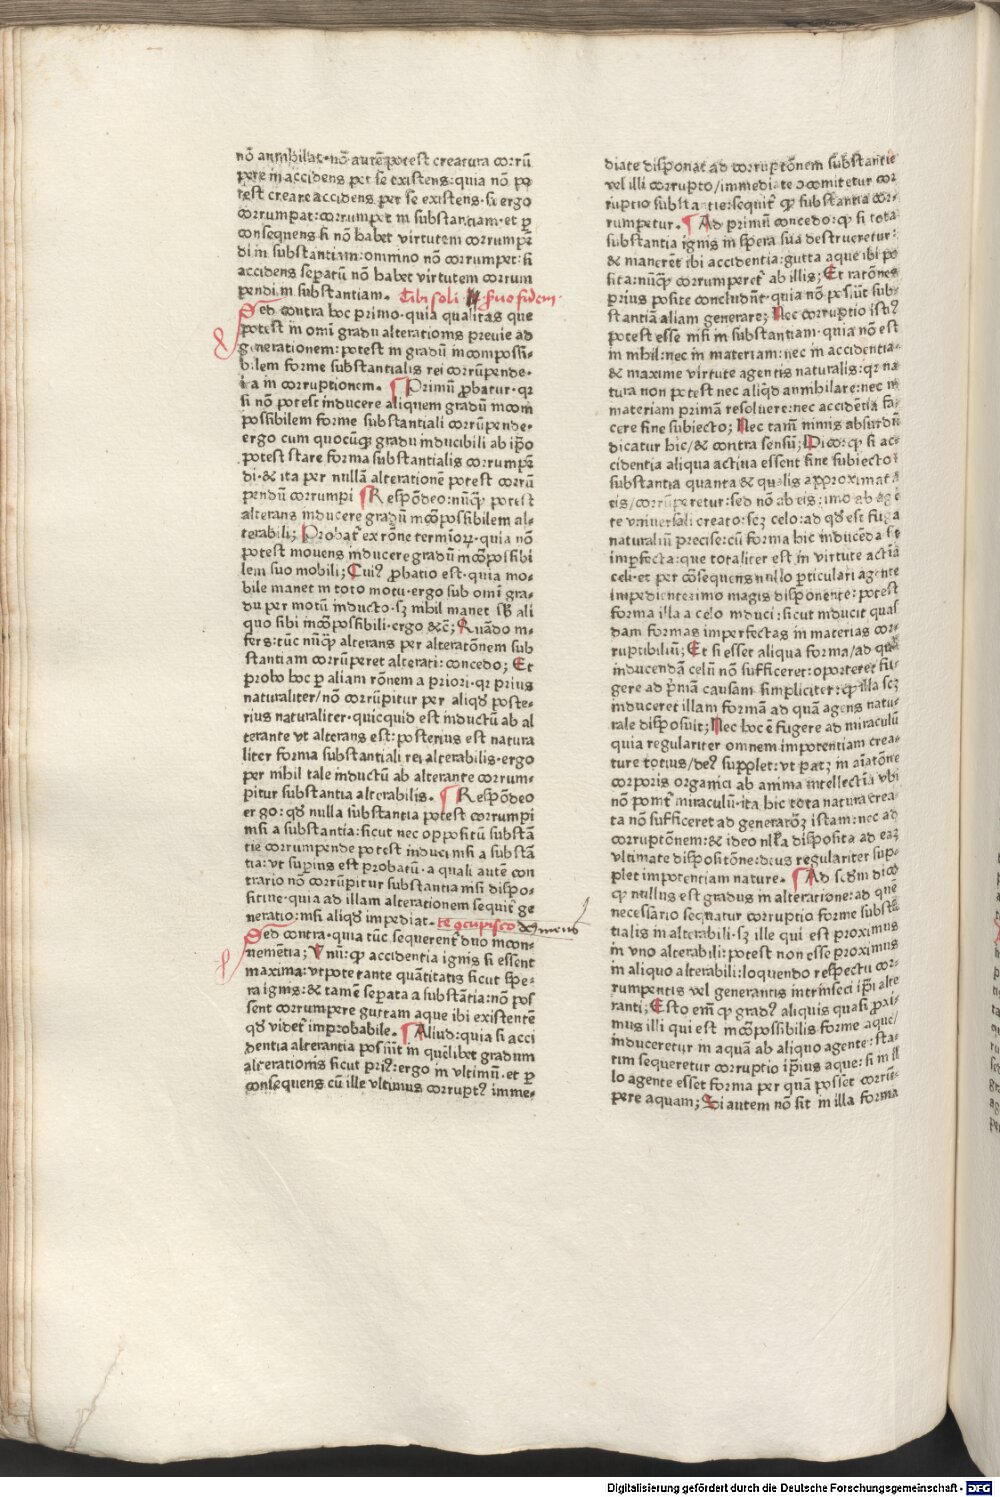 nō annihilat·nō autē potest creatura corrū
pere in accidens per se existens: quia nō po
test creare accidens per se existens·si ergo
corrumpat: corrumpet in substantiam·et ꝑ
consequens si nō habet virtutem corrumpē
di in substantiam: omnino nō corrumpet: si
accidens sepatū nō habet virtutem corrum
pendi in substantiam. Tibi soli suo fidem·
Sed contra hoc primo·quia qualitas que
potest in omī gradu alterationis previe ad
generationem: potest in gradū incompossi-
bilem forme substantialis rei corrūpende·
ita in corruptionem. ¶ Primū ꝓbatur·qr
si nō potest inducere aliquem gradū incom
possibilem forme substantiali corrūpende·
ergo cum quocūqꝫ gradu inducibili ab ip̄o
potest stare forma substantialis corrumpē
di·& ita per nullā alterationē potest corrū
pendū corrumpi ¶ Respōdeo: nūqꝫ potest
alterans inducere gradū incōpossibilem al-
terabili; Probat᷑ ex rōne termīoꝝ·quia nō
potest movens inducere gradū incōpossibi
lem suo mobili; Cui⁹ ꝓbatio est·quia mo-
bile manet in toto motu·ergo sub omī gra-
du per motū inducto·sꝫ nihil manet sb̄ ali
quo sibi incōpossibili·ergo &c̄; Quādo in-
fers: tūc nūqꝫ alterans per alteratōnem sub
stantiam corrūperet alterati: concedo; Et
ꝓbo hoc ꝑ aliam rōnem a priori·qr prius
naturaliter/nō corrūpitur per aliqd̄ poste-
rius naturaliter·quicquid est inductū ab al
terante vt alterans est: posterius est natura
liter forma substantiali rei alterabilis·ergo
per nihil tale inductū ab alterante corrum-
pitur substantia alterabilis. ¶ Respōdeo
ergo: qd̄ nulla substantia potest corrumpi
nisi a substantia: sicut nec oppositū substā
tie corrumpende potest induci nisi a substā
tia: vt superius est probatū·a quali autē con
trario nō corrūpitur substantia nisi dispo-
sitiue·quia ad illam alterationem sequit᷑ ge
neratio: nisi aliqd̄ impediat. te ꝯcupisco
Sed contra·quia tūc sequerent᷑ duo incon-
nemētia; Vnū: qꝫ accidentia ignis si essent
maxima: vtpote tante quātitatis sicut spe-
ra ignis: & tamē seperata a substātia: nō pos
sent corrumpere guttam aque ibi existentē
qd̄ videt᷑ improbabile. ¶ Aliud: quia si acci
dentia alterantia possūt in quēlibet gradum
alterationis sicut pri⁹: ergo in vltimū·et ꝑ
consequens cū ille vltimus corrupt⁹ imme-
diate disponat ad corruptōnem substantie
vel illi corrupto/immediate ꝯcomitetur cor
ruptio substantie: sequit᷑ qꝫ substantia cor-
rumpetur. ¶ Ad primū concedo: qꝫ si tota
substantia ignis in spera sua destrueretur:
& manerēt ibi accidentia: gutta aque ibi po
sita: nūqꝫ corrumperet᷑ ab illis; Et ratōnes
prius posite concludūt·quia nō possūt sub-
stantiā aliam generare; Nec corruptio isti⁹
potest esse nisi in substantiam·quia nō est
in nihil: nec in materiam: nec in accidentia·
& maxime virtute agentis naturalis: qr na
tura non potest nec aliqd̄ annihilare: nec in
materiam primā resoluere: nec accidētia fa-
cere sine subiecto; Nec tam̄ nimis absurdū
dicatur hic/& contra sensū; Dico: qꝫ si ac-
cidentia aliqua actiua essent sine subiecto:
substantia quanta & qualis approximata
eis/corrūperetur: sed nō ab eis: imo ab agē
te vniuersali creato: scꝫ celo: ad qd̄ est fuga
naturaliū precise: cū forma hic inducēda sit
imperfecta: que totaliter est in virtute actiā
celi·et per cōsequens nullo ꝑticulari agente
impediente: imo magis disponente: potest
forma illa a celo induci: sicut inducit quas
dam formas imperfectas in materias cor-
ruptibiliū; Et si esset aliqua forma/ad quā
inducendā celū nō sufficeret: oporteret fu-
gere ad p̄miā causam simpliciter: qꝫ illa scꝫ
induceret illam formā ad quā agens natu-
rale disposuit; Nec hoc ē fugere ad miraculū
quia regulariter omnem impotentiam crea-
ture totius/de⁹ supplet: vt patꝫ in aīatōne
corporis organici ab anima intellectiā vbi
nō ponit᷑ miraculū·ita hic tota natura crea
ta nō sufficeret ad generatōꝫ istam: nec ad
corruptōnem: & ideo nlla disposita ad eaꝫ
vltimate dispositōne: deus regulariter sup-
plet impotentiam nature. ¶ Ad scdm dico
qꝫ nullus est gradus in alteratione: ad quē
necessario sequatur corruptio forme substā
tialis in alterabili·sꝫ ille qui est proximus
in vno alterabili: potest non esse proximus
in aliquo alterabili: loquendo respectu cor-
rumpentis vel generantis intrinseci ip̄i alte
ranti; Esto em̄ qꝫ grad⁹ aliquis quasi ꝓxi-
mus illi qui est incōpossibilis forme aque/
induceretur in aquā ab aliquo agente: sta-
tim sequeretur corruptio ip̄ius aque: si in il
lo agente esset forma per quā posset corrū-
pere aquam; Si autem nō sit in illa forma
Digitalisierung gefördert durch die Deutsche Forschungsgemeinschaft - DFG